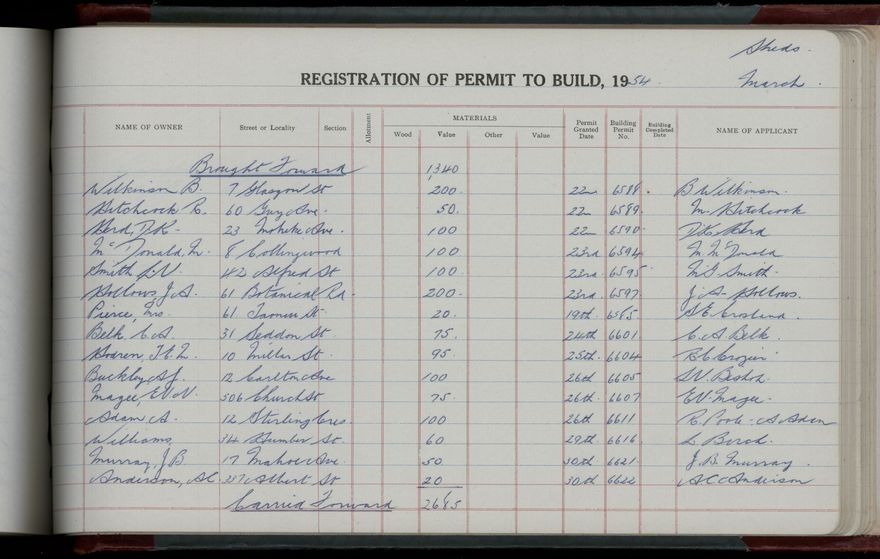 Sheds.
REGISTRATION OF PERMIT TO BUILD, 1954.
March.
NAME OF OWNER Street or Locality Section Allotment MATERIALS Wood Value Other Value Permit Granted Date Building Permit No. Building Completed Date NAME OF APPLICANT
Brought Forward 1340
Wilkinson B. 7 Glasgow St 200. 22nd 6588. B Wilkinson.
Hitchcock R. 60 Guy Ave. 50. 22 6589. M. Hitchcock
Herd, D.K. 23 Moheke Ave. 100 22 6590. D.K. Herd
McDonald, M. 8 Collingwood 100 23rd 6594 M. McDonald
Smith 42 Alfred St 100. 23rd 6595 Smith.
Hollows, J.A. 61 Botanical Rd. 200. 23rd. 6597 J.A. Hollows.
Pierce, Mrs. 61 St. 20. 19th. 6585 Crosland.
Belk, C.A. 31 Seddon St. 75. 24th 6601 C.A. Belk.
10 Miller St. 95. 25th. 6604 Crozier
Buckley, A.J. 12 Carlton Ave 100 26th 6605 Bishop.
Magee, E.V. 506 Church St 75. 26th. 6607 E.V. Magee.
Adam, A. 12 Stirling Cres. 100 26th 6611 R. Poole. A. Adam
Williams, 34 Humber St. 60 29th 6616. L. Birch.
Murray, J.B. 17 Mahoe Ave. 50 30th 6621. J.B. Murray.
Anderson, A.C. 257 Albert St 20 30th 6622 A C Anderson
Carried Forward 2685